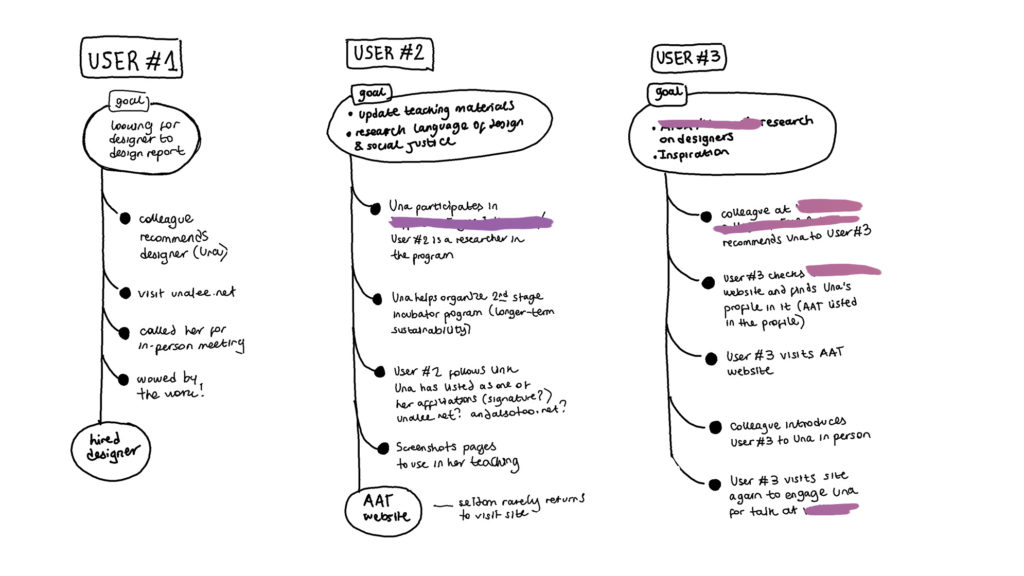 USER #1
goal
looking for
designer to
design report
colleague
recommends
designer (Una)
visit unalee.net
called her for
in-person meeting
wowed by
the work!
hired
designer
USER #2
goal
• update teaching materials
• research language of design
& social justice
Una participates in
User #2 is a researcher in
the program
Una helps organize 2nd stage
incubator program (longer-term
sustainability)
User #2 follows link
Una has listed as one of
her affiliations (signature?)
unalee.net? andalsotoo.net?
Screenshots pages
to use in her teaching
AAT
website
— seldom rarely returns
to visit site
USER #3
goal
• research
on designers
• Inspiration
colleague at
recommends Una to User #3
User #3 checks
website and finds Una's
profile in it (AAT listed
in the profile)
User #3 visits AAT
website
Colleague introduces
User #3 to Una in person
User #3 visits site
again to engage Una
for talk at